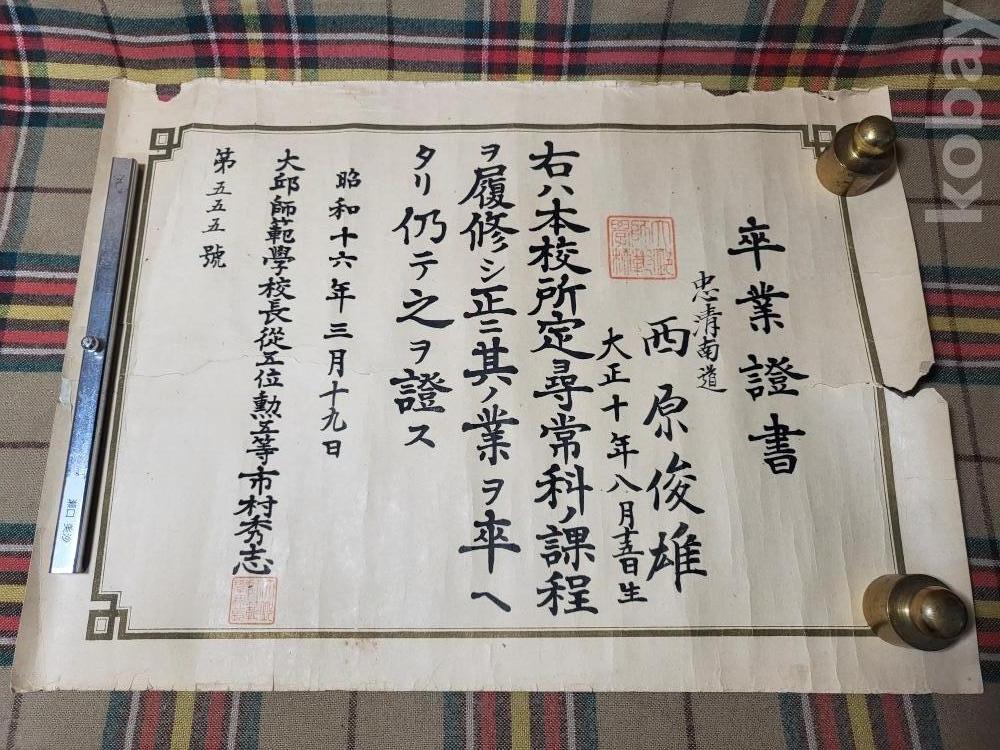 卒業證書
忠清南道
西原俊雄
大正十年八月十五日生
右ハ本校所定尋常科ノ課程
ヲ履修シ正ニ其ノ業ヲ卒ヘ
タリ仍テ之ヲ證ス
昭和十六年三月十九日
大邱師範學校長從五位勲五等市村秀志
第五五五號
kobay